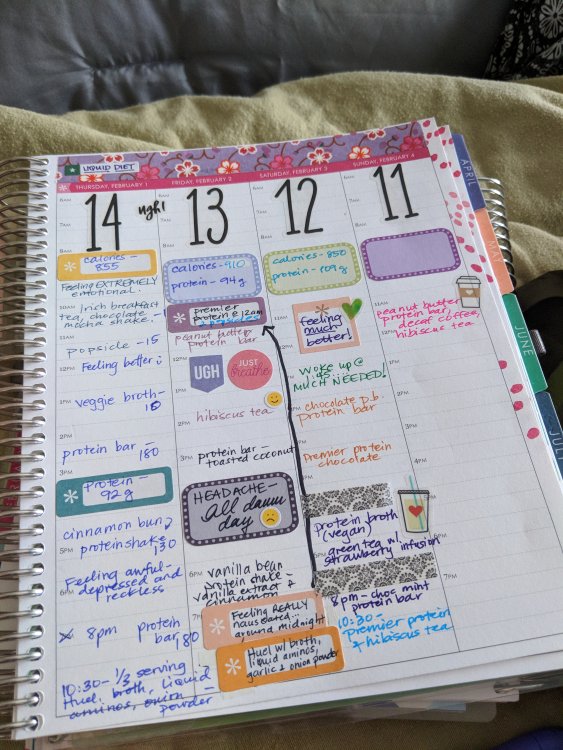 LIQUID DIET
THURSDAY, FEBRUARY 1
FRIDAY, FEBRUARY 2
SATURDAY, FEBRUARY 3
SUNDAY, FEBRUARY 4
14
ugh!
calories -
855
Feeling EXTREMELY
emotional.
irish breakfast
tea, chocolate
mocha shake.
popsicle - 15
Feeling better :)
veggie broth -
10
protein bar -
180
Protein -
92g
cinnamon bun
protein shake
130
Feeling awful-
depressed and
reckless
8pm protein
bar, 180
10:30 - 1/3 serving
Huel: broth, liquid
aminos, onion
powder
13
calories - 910
protein - 94g
premier
protein @ 12am
peanut butter
protein bar
UGH
JUST
breathe
hibiscus tea
protein bar -
toasted coconut
HEADACHE -
All damn
day
vanilla bean
protein shake -
vanilla extract +
cinnamon
Feeling REALLY
nauseated...
around midnight
Huel w/ broth,
liquid aminos,
garlic & onion powder
12
calories - 850
protein - 109g
feeling
much
better!
woke up @
MUCH NEEDED!
chocolate p.b
protein bar
Premier protein
chocolate
protein broth
(vegan)
green tea w/
strawberry infusion
8pm - choc mint
protein bar
10:30 -
Premier protein
& hibiscus tea
11
peanut butter
protein bar,
decaf coffee,
hibiscus tea
APRIL
MAY
JUNE
JULY
6AM
7AM
8AM
10AM
11AM
12PM
1PM
2PM
3PM
5PM
6PM
7PM